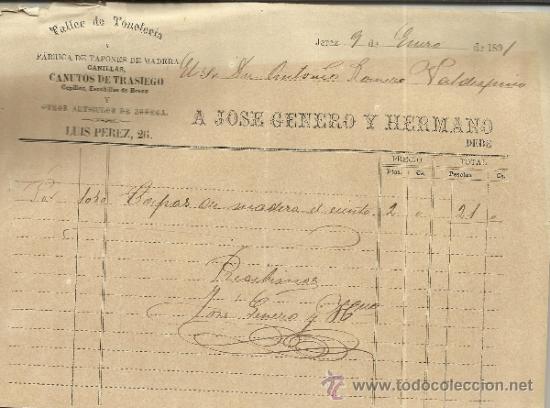 Taller de Tonelería
Y
FÁBRICA DE TAPONES DE MADERA
CANILLAS,
CANUTOS DE TRASIEGO
Cepillos, Escobillas de Brezo
Y
OTROS ARTICULOS DE BODEGA.
LUIS PEREZ, 26.
Jerez 9 de Enero de 1891
Sr. Dn. Antonio Romero Valdespino
A JOSE GENERO Y HERMANO
DEBE
PRECIO TOTAL
Ptas. Cs. Pesetas Cs.
Por 1050 Tapas de madera el ciento 2 0 21 0
Recibimos
José Genero y Hno
todocoleccion.net